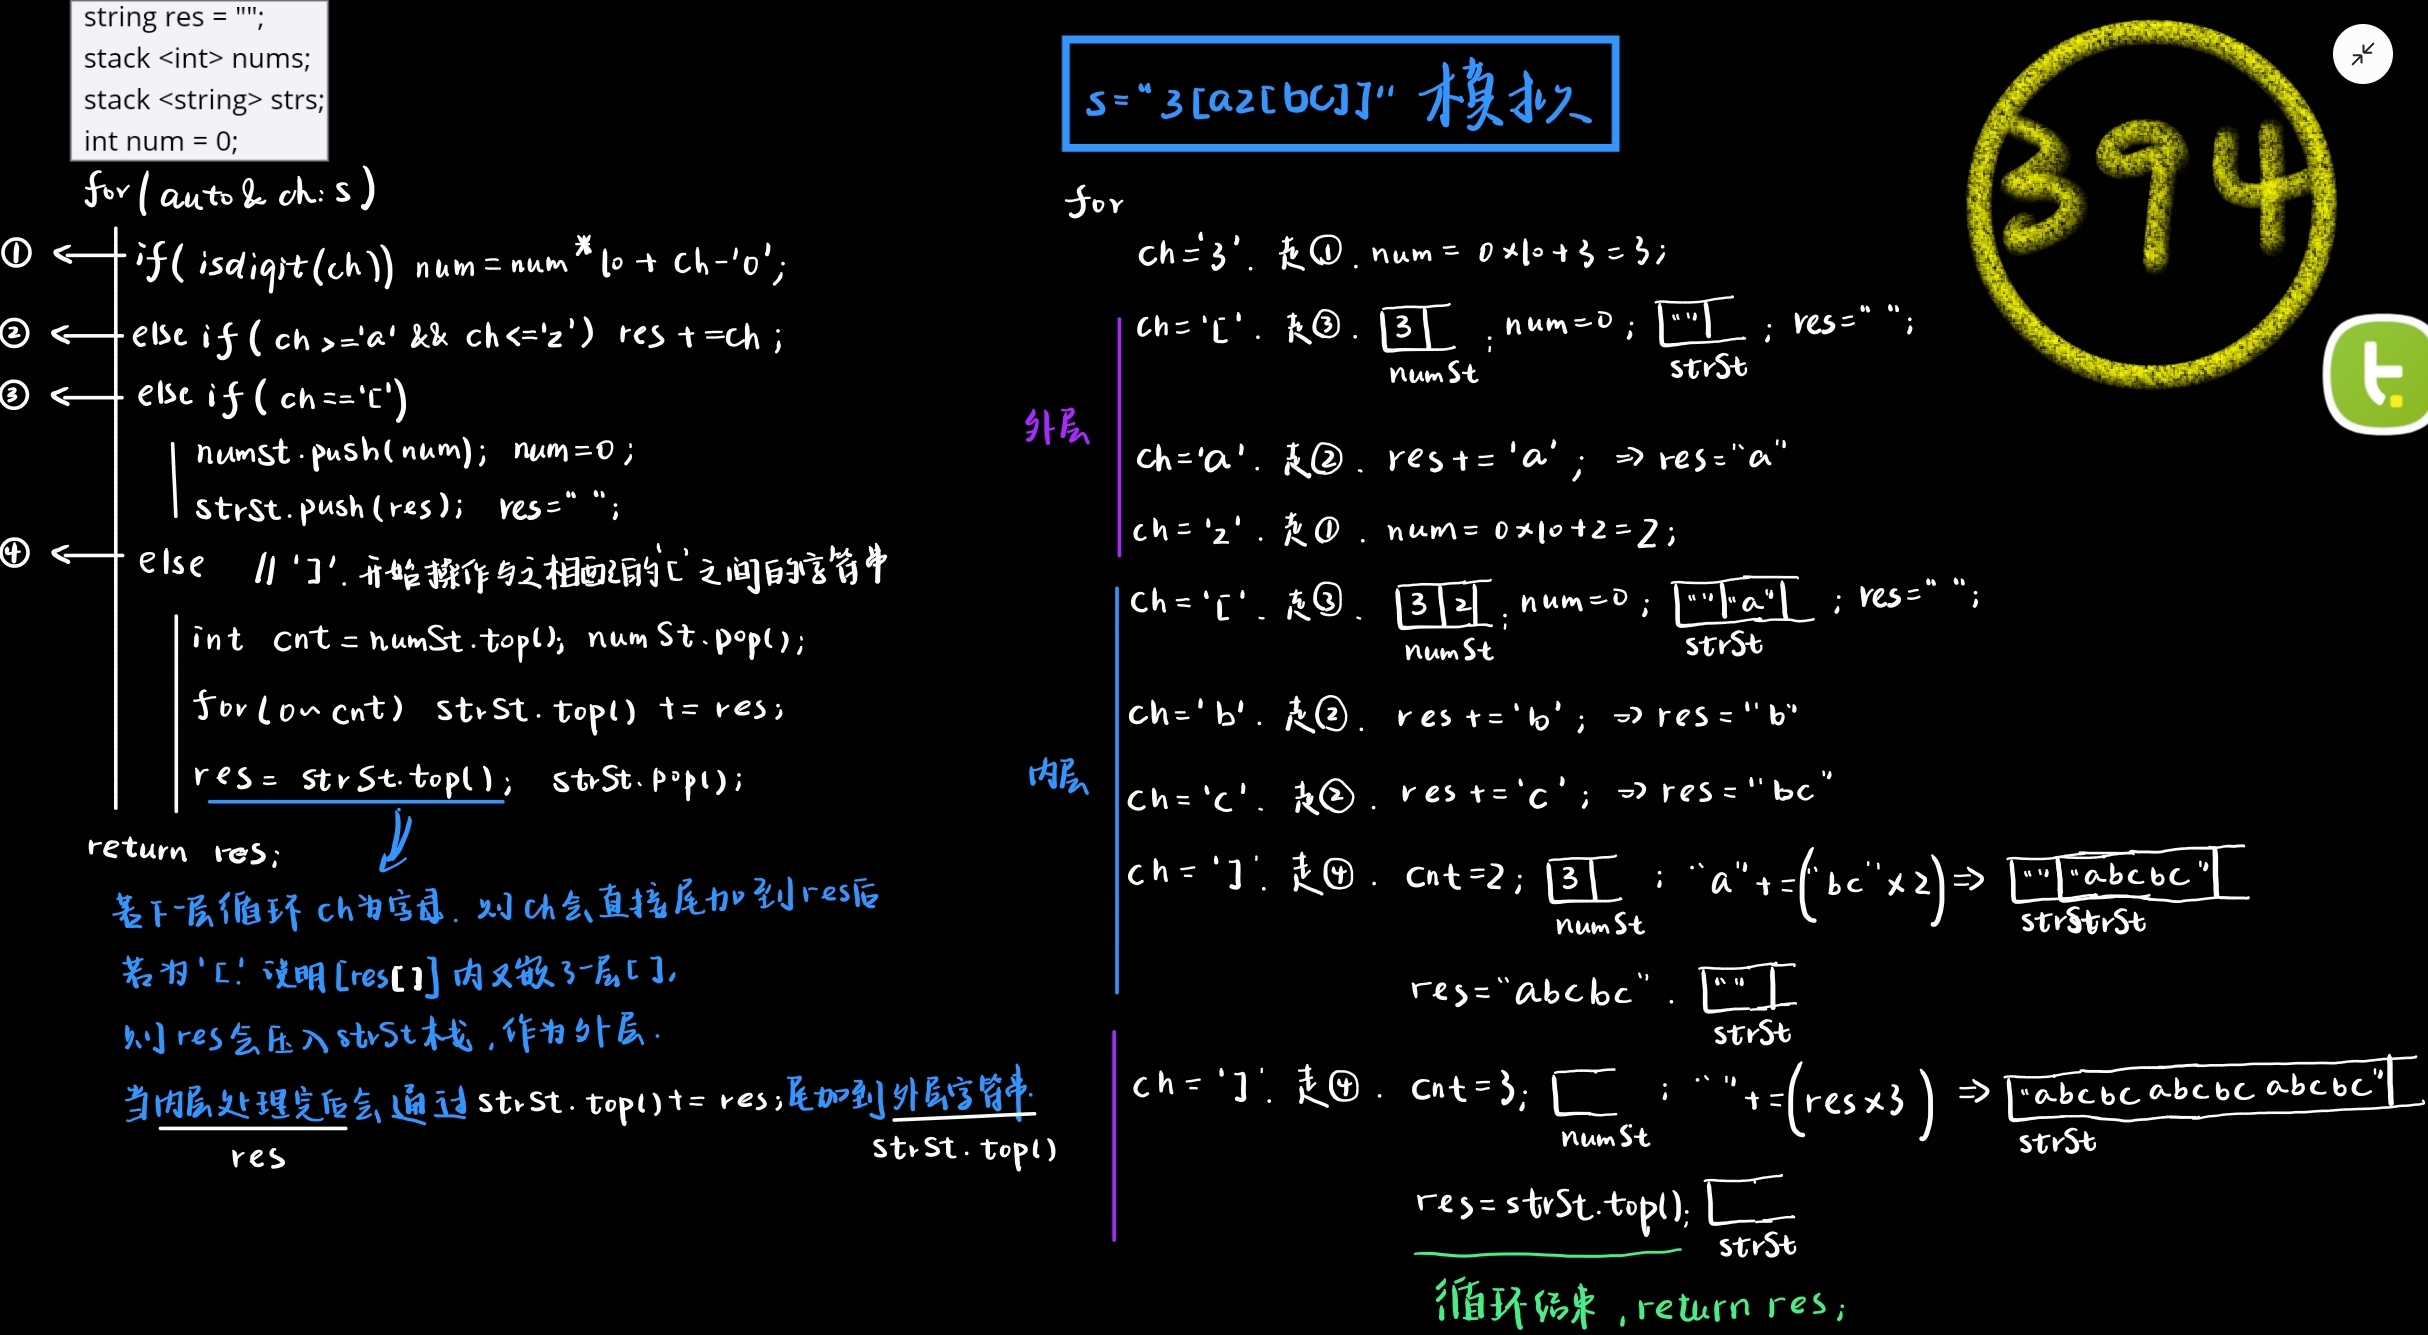 string res = "";
stack <int> nums;
stack <string> strs;
int num = 0;
for(auto& ch: s)
① ← if( isdigit(ch)) num = num*10 + ch-'0';
② ← else if( ch >='a' && ch<='z') res +=ch;
③ ← else if( ch=='[')
numst.push(num); num=0;
strSt.push(res); res=" ";
④ ← else // ']'.开始操作与之相匹配的'['之间的字符串
int cnt = numSt.top(); numSt.pop();
for(0~cnt) strSt.top() += res;
res = strSt.top(); strSt.pop();
return res;
若下一层循环ch为字母.则ch会直接尾加到res后
若为'['说明[res[]]内又嵌了一层[],
则res会压入strSt栈,作为外层.
当内层处理完后会通过strSt.top()+= res;尾加到外层字符串.
res
strSt.top()
s="3[a2[bc]]" 模拟
394
for
ch='3'. 走①. num = 0×10+3=3;
ch='['. 走③. 3 ; num=0; "" ; res=" ";
numSt strSt
外层
ch='a'. 走②. res+='a'; ⇒ res="a"
ch='2'. 走①. num=0×10+2=2;
ch='['. 走③. 3 2 ; num=0; "" "a" ; res=" ";
numSt strSt
ch='b'. 走②. res+='b'; ⇒ res="b"
内层
ch='c'. 走②. res+='c'; ⇒ res="bc"
ch=']'. 走④. cnt=2; 3 ; "a"+=("bc"×2) ⇒ "" "abcbc"
numSt strSt strSt
res="abcbc". ""
strSt
ch=']'. 走④. cnt=3; ; ""+=(res×3) ⇒ "abcbc abcbc abcbc"
numSt strSt
res=strSt.top();
strSt
循环结束,return res;
t.